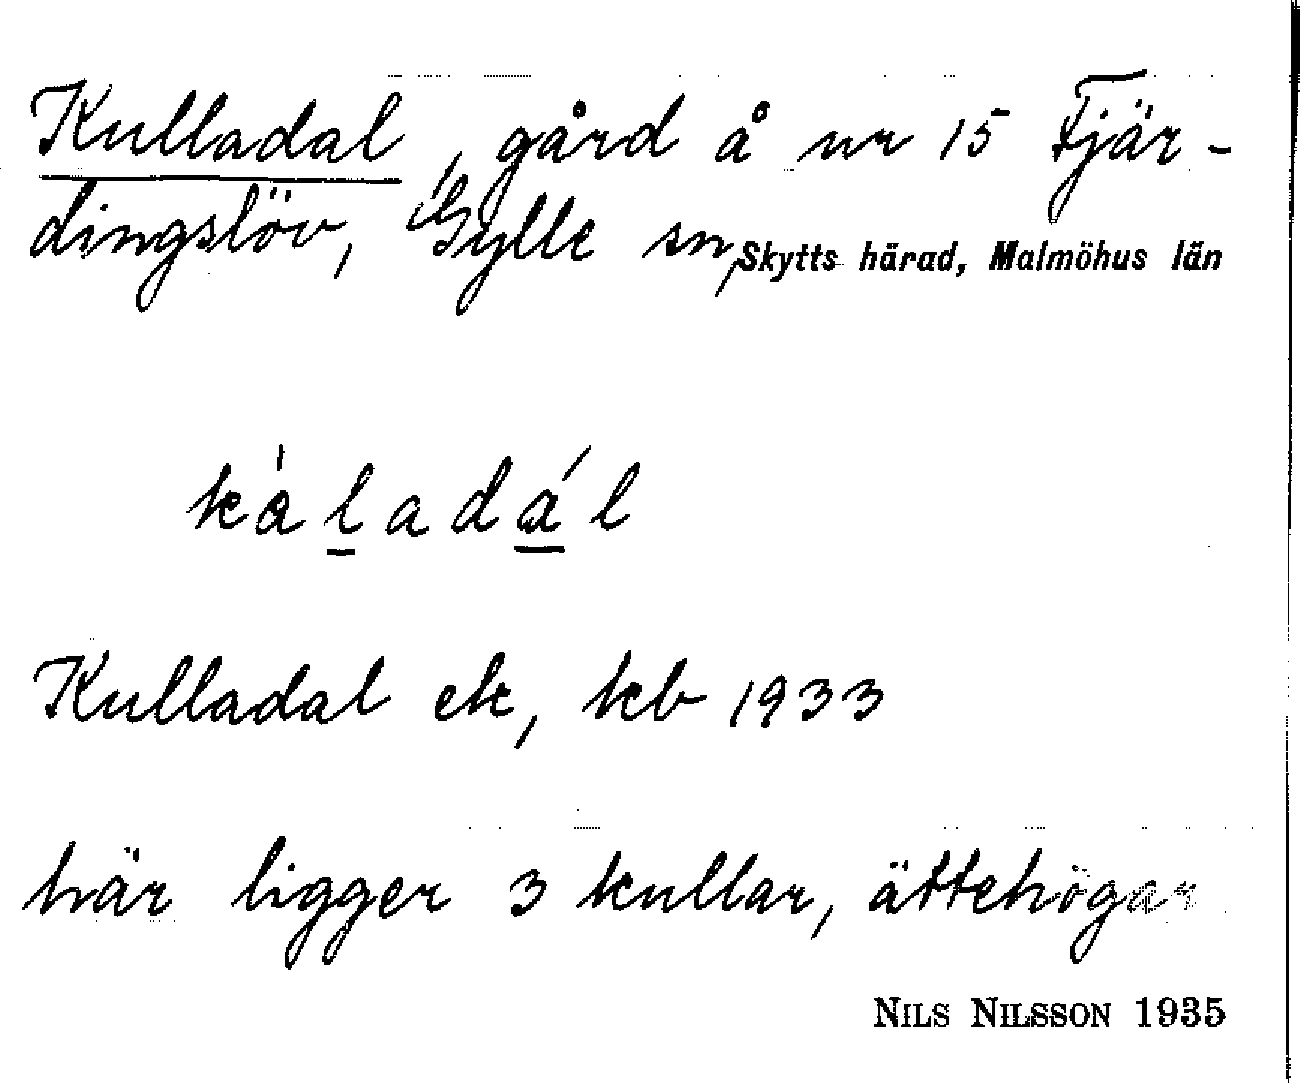 Kulladal, gård å nr 15 Fjär-
dingslöv, Gylle sn, Skytts härad, Malmöhus län
kàl̲adá̲l
Kulladal ek, kb 1933
här ligger 3 kullar, ättehögar
NILS NILSSON 1935